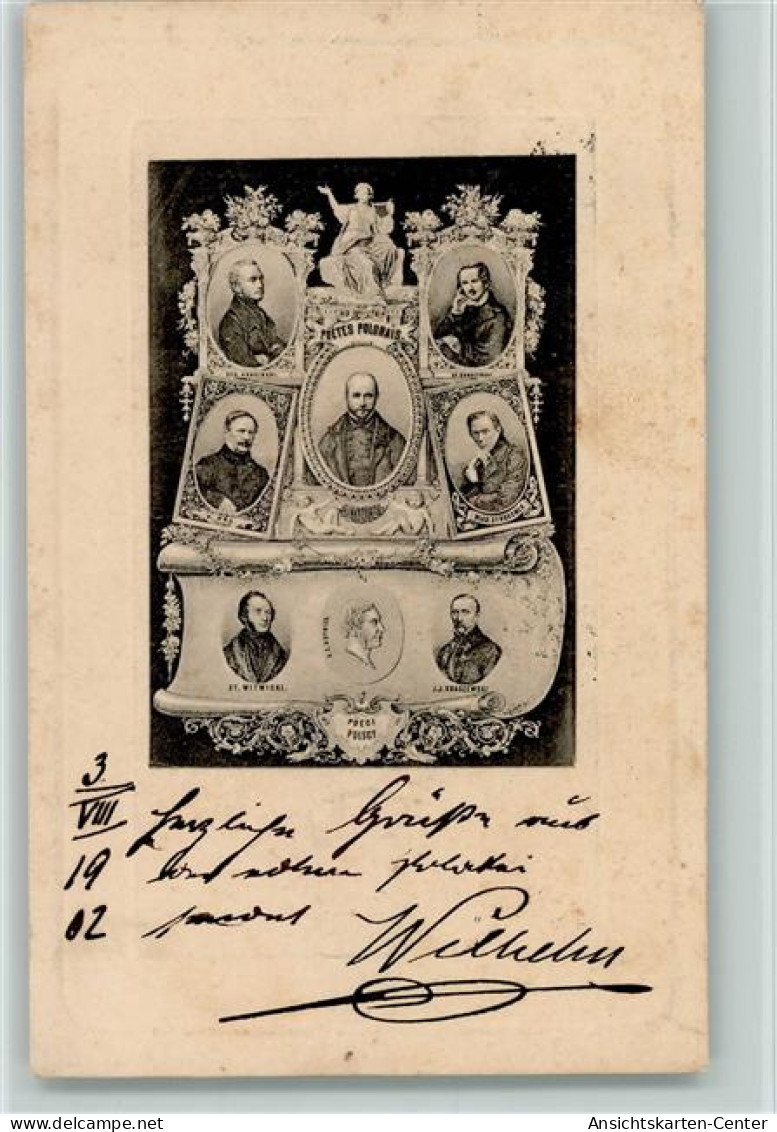 POÈTES POLONAIS
ST. WITWICKI.
J.J. KRASZEWSKI
POECI
POLSCY
3
VIII
19
02
Herzliche Grüße aus
der edlen Polakei
sendet
Wilhelm
delcampe.net
Ansichtskarten-Center